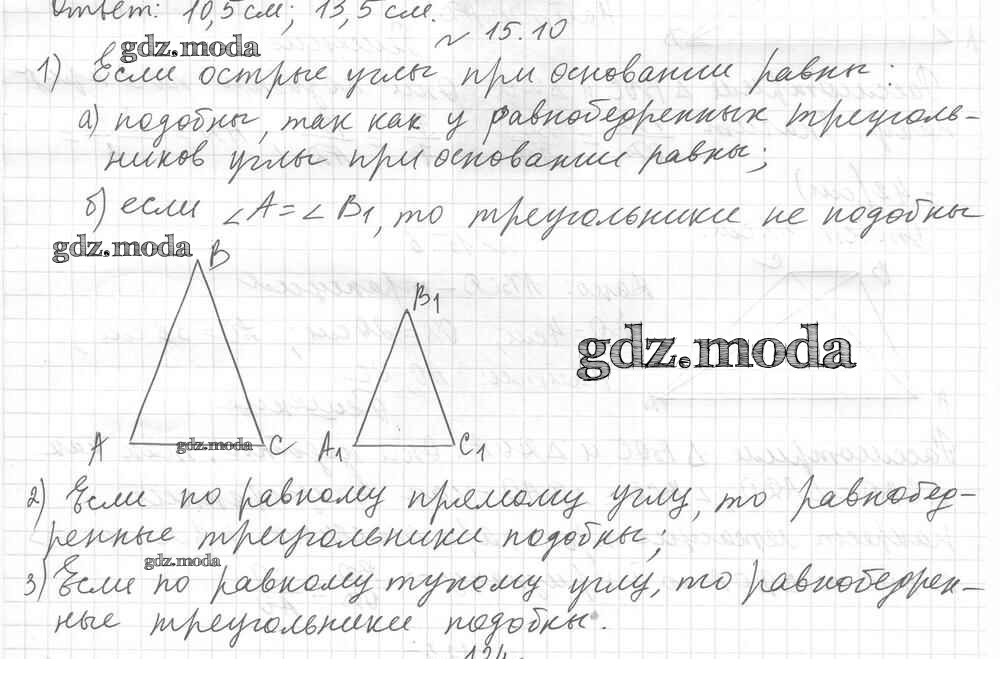 Ответ: 10,5 см; 13,5 см.
№ 15.10
gdz.moda
1) Если острые углы при основании равны:
а) подобны, так как у равнобедренных треуголь-
ников углы при основании равны;
б) если ∠A = ∠B1, то треугольники не подобны
gdz.moda
B
B1
gdz.moda
A gdz.moda C A1 C1
2) Если по равному прямому углу, то равнобед-
ренные треугольники подобны;
gdz.moda
3) Если по равному тупому углу, то равнобедрен-
ные треугольники подобны.